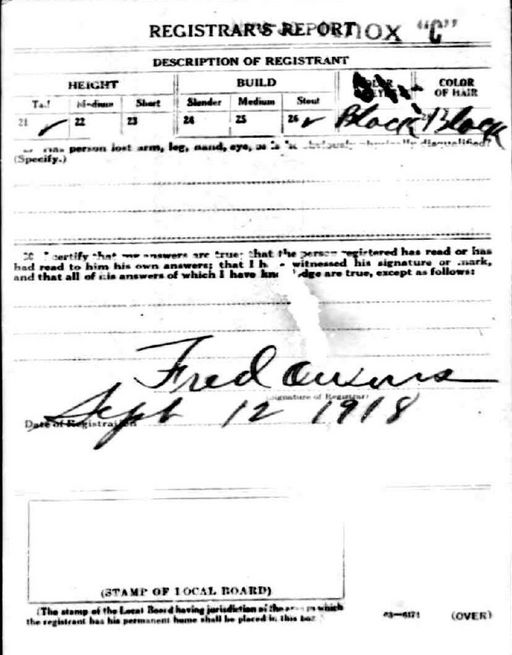 REGISTRAR'S REPORT NOX "C"
DESCRIPTION OF REGISTRANT
HEIGHT BUILD COLOR OF EYES COLOR OF HAIR
Tall Medium Short Slender Medium Stout
21 ✓ 22 23 24 25 26 ✓ Black Black
has person lost arm, leg, hand, eye, or is he obviously physically disqualified?
(Specify.)
30 I certify that my answers are true; that the person registered has read or has
had read to him his own answers; that I have witnessed his signature or mark,
and that all of his answers of which I have knowledge are true, except as follows:
Fred
(Signature of Registrar)
Date of Registration Sept 12 1918
(STAMP OF LOCAL BOARD)
(The stamp of the Local Board having jurisdiction of the area in which
the registrant has his permanent home shall be placed in this box.)
03—6171 (OVER)